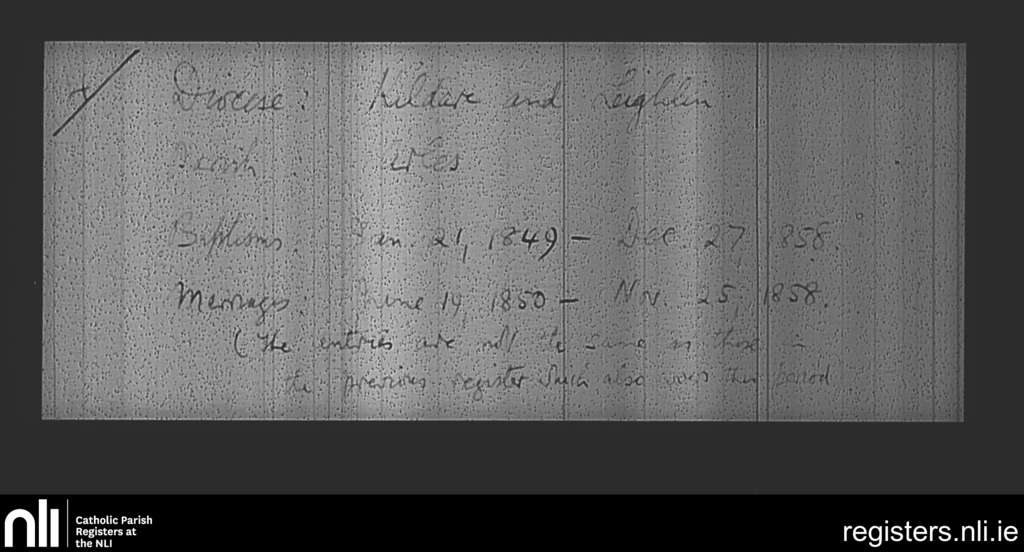 Diocese: Kildare and Leighlin
Parish arles
Baptisms: Jan. 21, 1849 – Dec. 27, 1858.
Marriages: June 19, 1850 – Nov. 25, 1858.
(The entries are not the same as those in
the previous register which also covers this period
nli
Catholic Parish
Registers at
the NLI
registers.nli.ie